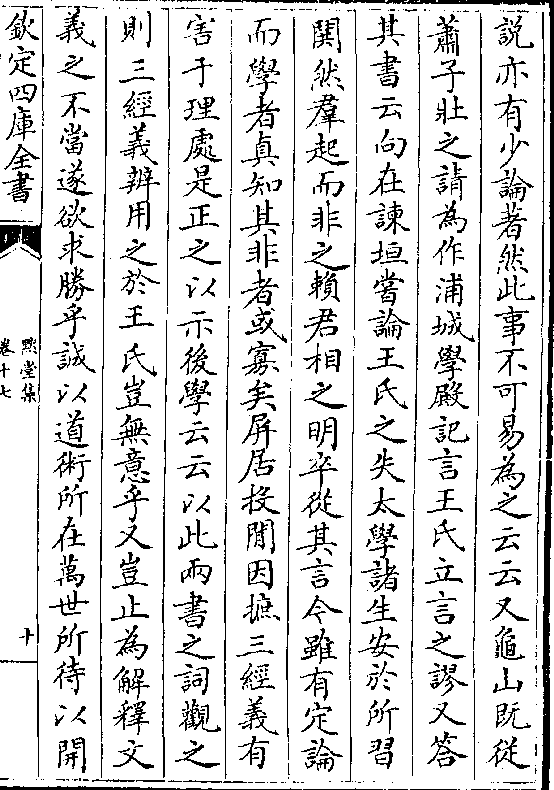 說亦有少論著然此事不可易為之云云又龜山既從
蕭子壯之請為作浦城學殿記言王氏立言之謬又答
其書云向在諫垣嘗論王氏之失太學諸生安於所習
閧然羣起而非之賴君相之明卒從其言今雖有定論
而學者真知其非者或寡矣屏居投閒因摭三經義有
害于理處是正之以示後學云云以此兩書之詞觀之
則三經義辨用之於王氏豈無意乎又豈止為解釋文
義之不當遂欲求勝乎誠以道術所在萬世所待以開
欽定四庫全書
默堂集
卷十七
十